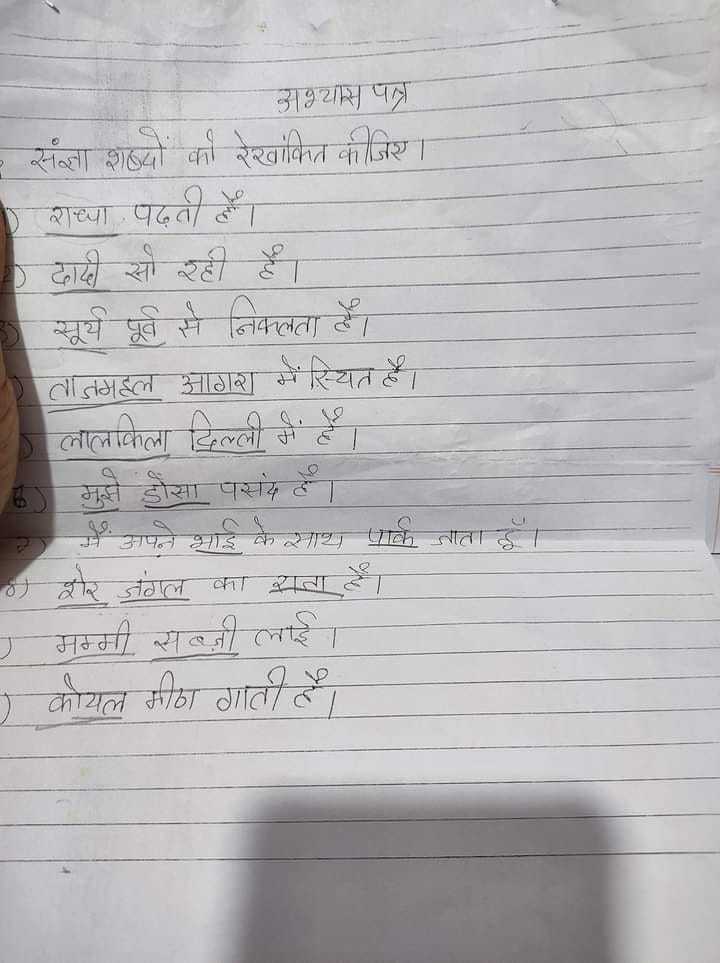 अभ्यास पत्र
संज्ञा शब्दों को रेखांकित कीजिए।
राधा पढती है।
दादी सो रही हैं।
3) सूर्य पूर्व से निकलता है।
ताजमहल आगरा में स्थित है।
लालकिला दिल्ली में है।
6) मुझे डोसा पसंद है।
7) मैं अपने भाई के साथ पार्क जाता हूँ।
8) शेर जंगल का राजा है।
) मम्मी सब्ज़ी लाई।
) कोयल मीठा गाती है।